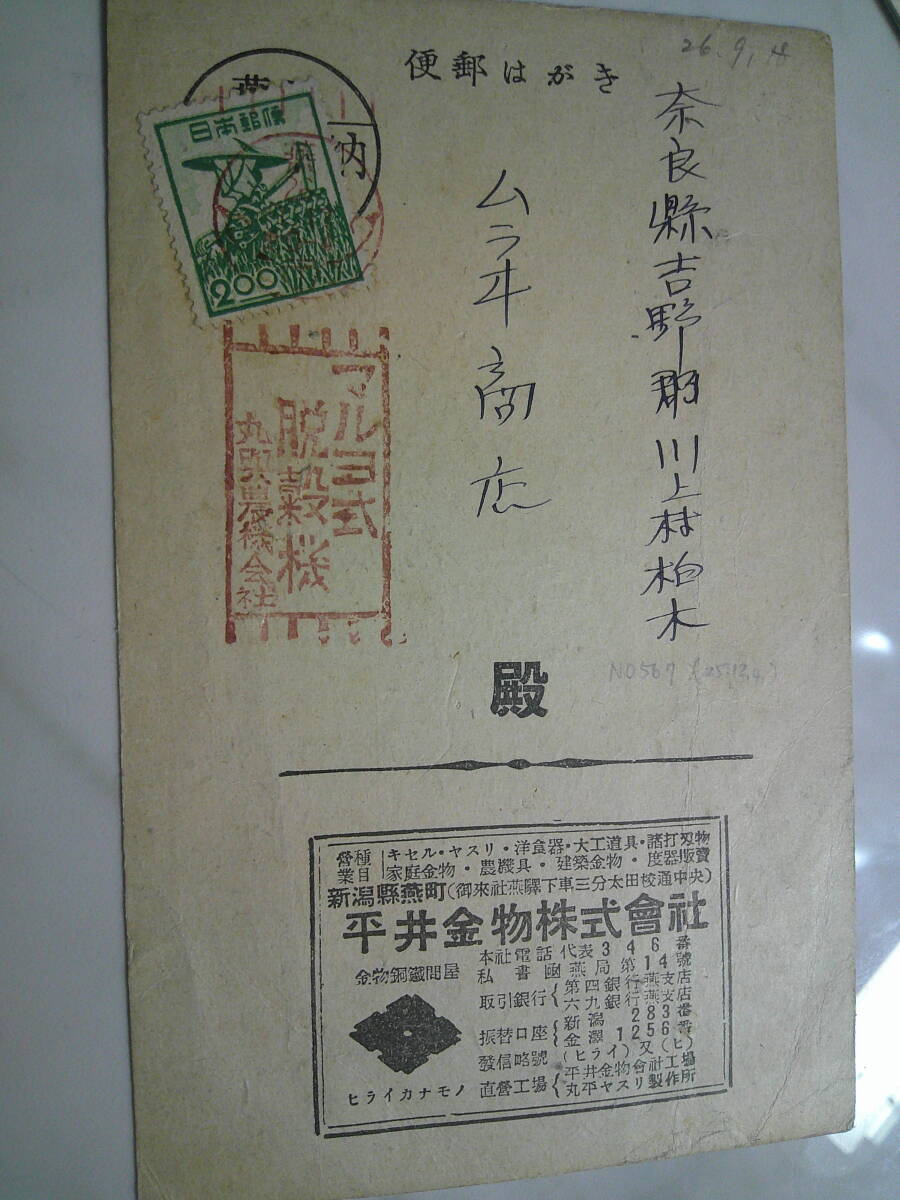 26.9.18
便郵はがき
奈良縣吉野郡川上村柏木
ムラ井商店
殿
日本郵便
200
燕
内
マルヨ式
脱穀機
農機会社
NO567 (25.13.4.)
営業種目
キセル・ヤスリ・洋食器・大工道具・諸打刃物
家庭金物・農機具・建築金物・度器販賣
新潟縣燕町(御來社燕驛下車三分太田校通中央)
平井金物株式會社
金物銅鐵問屋
本社電話 代表346番
私書凾燕局第14號
取引銀行{第四銀行燕支店
六九銀行燕支店
振替口座{新潟283番
金澤1256番
發信略號(ヒライ)又(ヒ)
直營工場{平井金物會社工場
丸平ヤスリ製作所
ヒライカナモノ